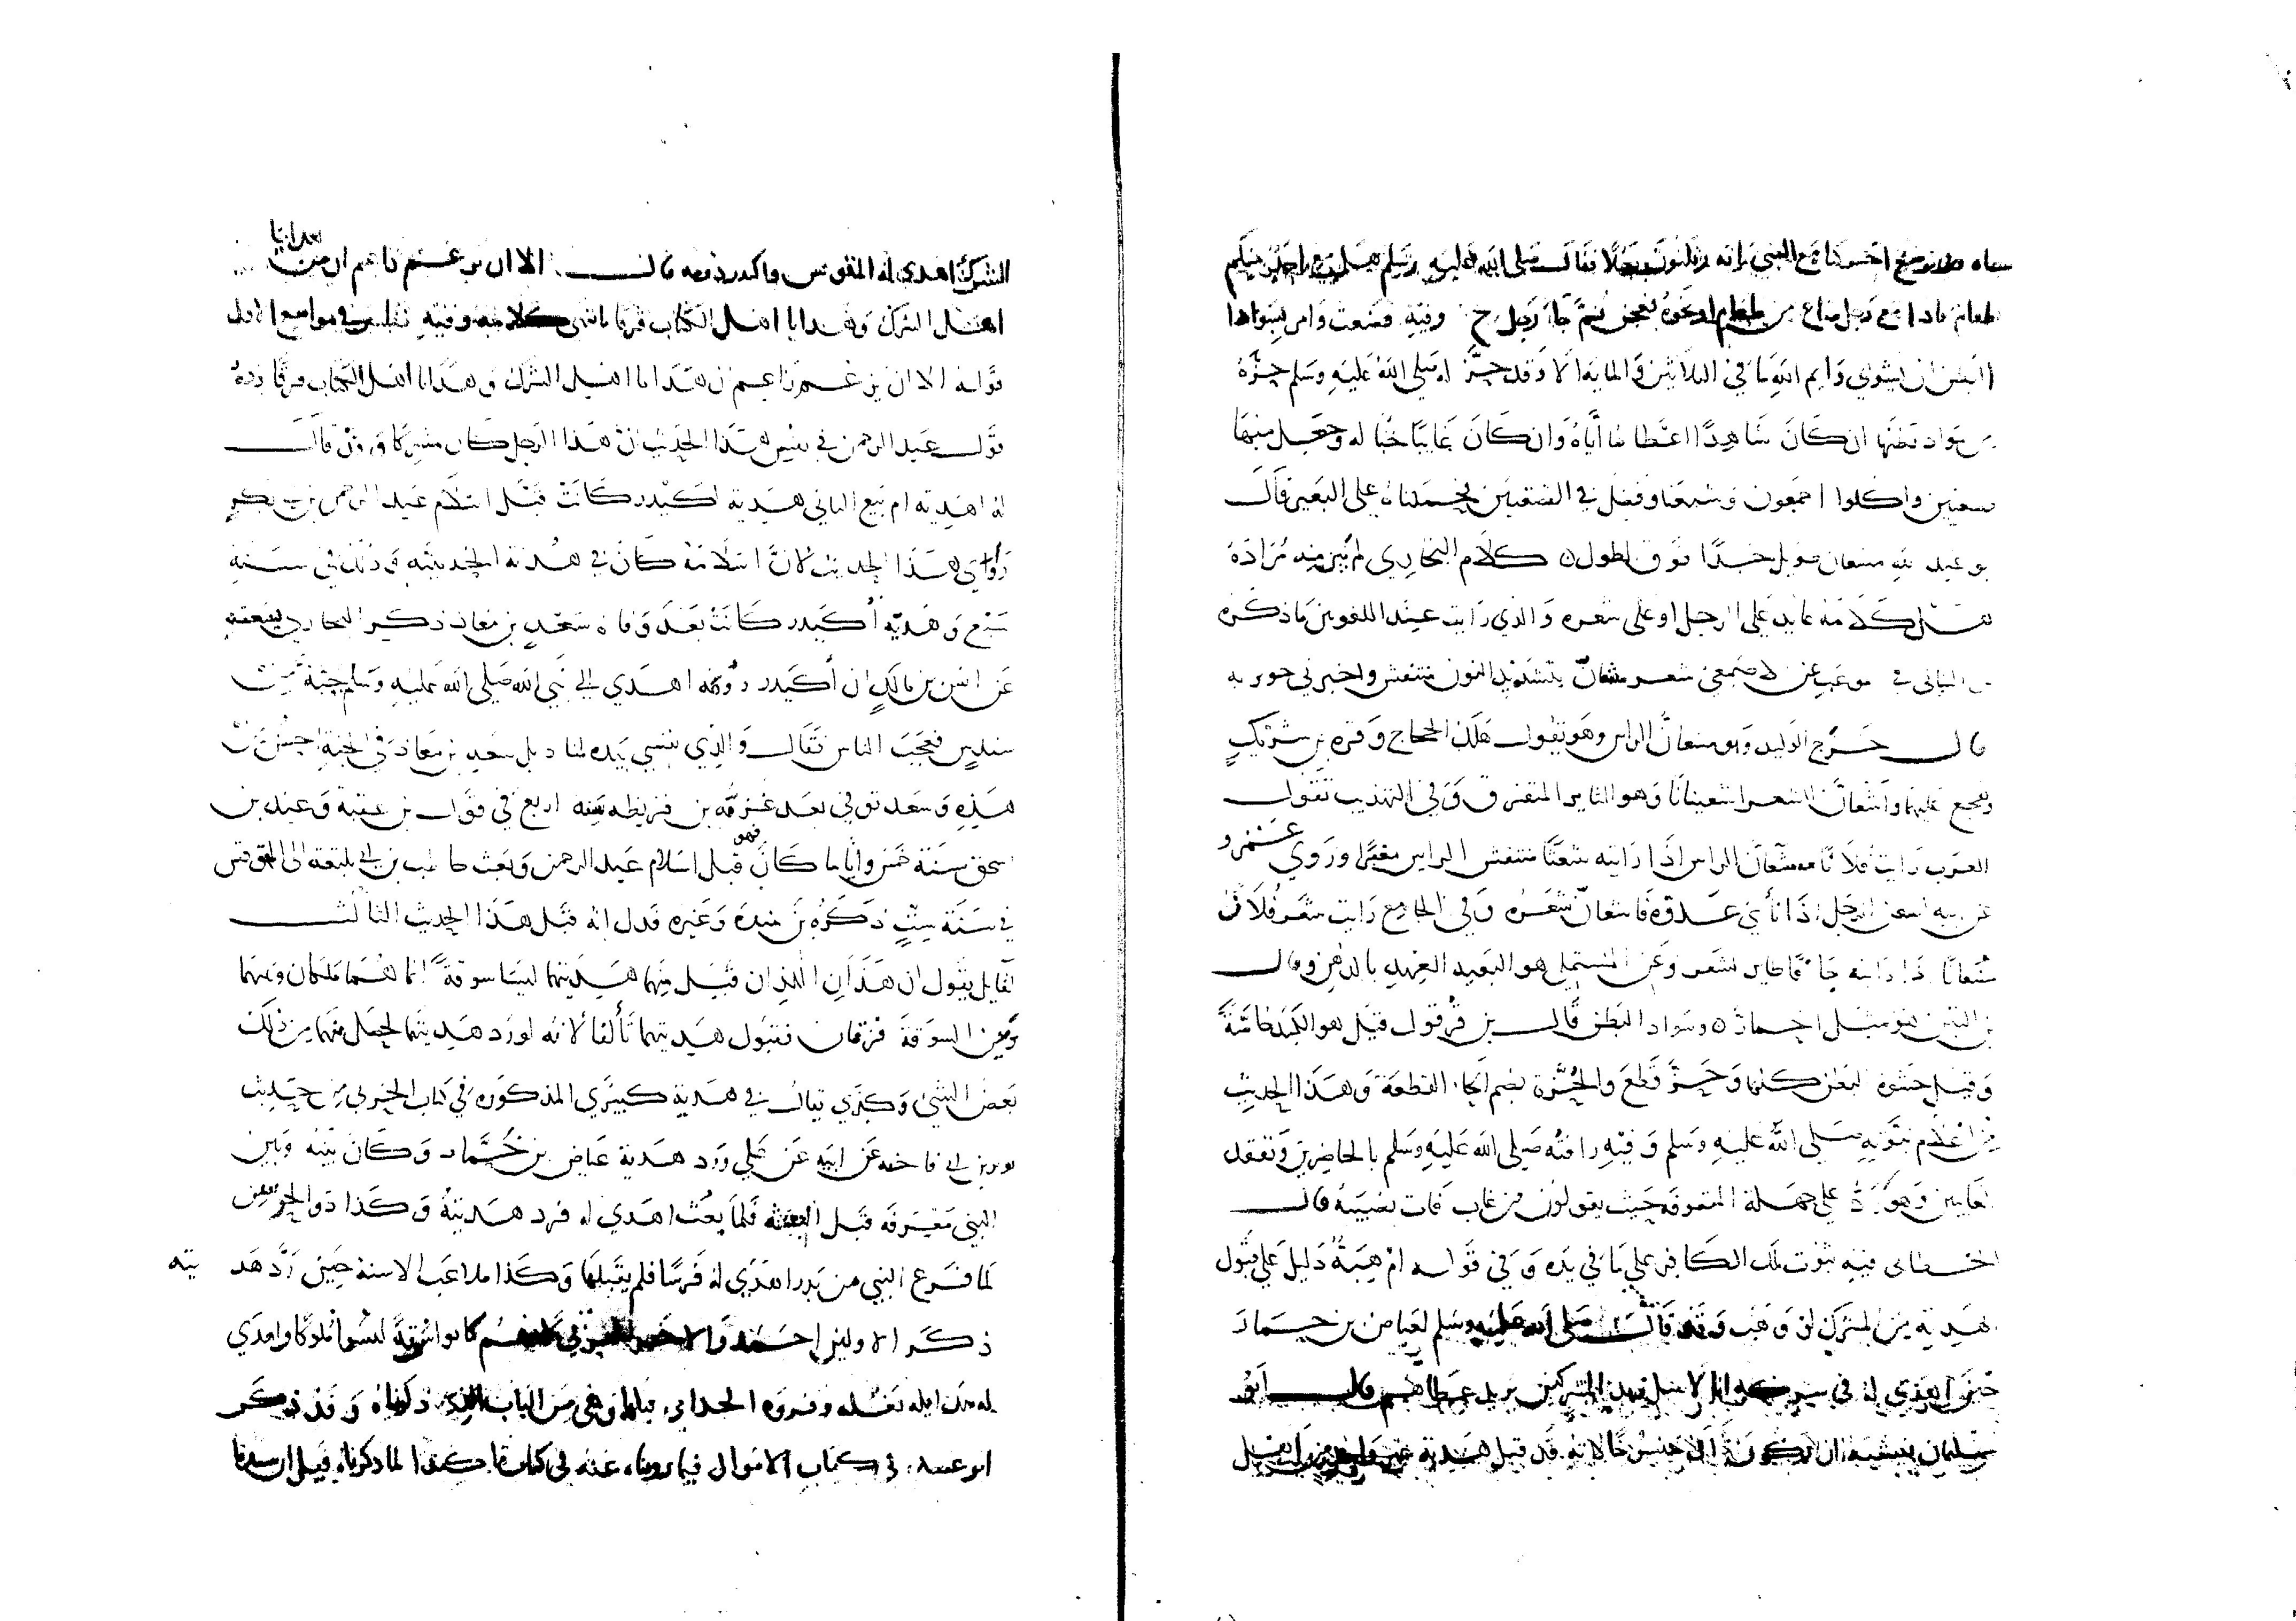 شاه طلاو صح اخبرنا مع النبي مائه وثلثون رجلا فقال صلى الله عليه وسلم هل مع احد منكم
طعام فاذا مع رجل صاع من طعام او نحوه فعجن ثم جا رجل ح وفيه فصنعت وامر بسواد
البطن ان يشوي وايم الله ما في الثلاثين والمايه الا وقد حز له صلى الله عليه وسلم حزة
من سواد بطنها ان كان شاهدا اعطاها اياه وان كان غايبا خبا له وجعل منها
قصعتين واكلوا اجمعون وشبعنا وفضل في القصعتين فحملناه على البعير قال
بو عبد الله مشعان طويل جدا فوق الطول ه كلام البخاري لم يبن منه مراده
هل كلامه عايد على الرجل او على شعره والذي رايت عند اللغويين ما ذكره
عن الاصمعي شعر مشعان بتشديد النون منتفش واخبرني
قال خرج الوليد وهو مشعان الراس وهو يقول هلك الحجاج وقره بن شريك
وتفجع عليهما واشعان الشعر اشعينانا وهو الثاير المتفرق وفي التهذيب تقول
العرب رايت فلانا مشعان الراس اذا رايته شعثا منتفش الراس مغبرا وروي عمرو
عن ابيه اشعن الرجل اذا ناصى عدوه فاشعان شعره وفي الجامع رايت شعر فلان
مشعانا اذا رايته جافا طاير الشعر وعن المستملي هو البعيد العهد بالدهن وقال
بن التين هو مثل احمار ه وسواد البطن قال بن قرقول قيل هو الكبد خاصة
وقيل حشوة البطن كلها وحز قطع والحزة بضم الحا القطعة وهذا الحديث
من اعلام نبوته صلى الله عليه وسلم وفيه رافته صلى الله عليه وسلم بالحاضرين وتفقد
الغايبين وهو رد على جهلة المتصوفه حيث يقولون من غاب فات نصيبه قال
الخطابى فيه ثبوت ملك الكافر على ما في يده وفي قوله ام هبة دليل على قبول
هدية من المشركين لو وهب وقد قال صلى الله عليه وسلم لعياض بن حمار
حين اهدي له في شركه انا لا نقبل زبد المشركين يريد عطاهم قال ابو
سليمان يشبه ان يكون حالا لانه قد قبل هدية غير واحد من اهل
الشرك اهدي له المقوقس واكيدر دومه قال الا ان يزعم زاعم ان بين هدايا
اهل الشرك وهدايا اهل الكتاب فرقا انتهى كلامه وفيه نظر في مواضع الاول
قوله الا ان يزعم زاعم ان هدايا اهل الشرك وهدايا اهل الكتاب فرقا رده
قول عبد الرحمن في نفس هذا الحديث ان هذا الرجل كان مشركا وقد قال
له اهديه ام بيع الثاني هدية اكيدر كانت قبل اسلام عبد الرحمن بن ابي بكر
راوي هذا الحديث لان اسلامه كان في هدنة الحديبيه وذلك في سنة
سبع وهدية اكيدر كانت بعد وفاة سعد بن معاذ ذكر البخاري بعقبه
عن انس بن مالك ان اكيدر دومه اهدي الى نبي الله صلى الله عليه وسلم جبة من
سندس فعجب الناس فقال والذي نفسي بيده لمناديل سعد بن معاذ في الجنة احسن من
هذه وسعد توفي بعد غزوة بن قريظه سنه اربع في قول بن عقبة وعند بن
اسحق سنة خمس وايا ما كان فهو قبل اسلام عبد الرحمن وبعث حاطب بن ابي بلتعة الى المقوقس
في سنة ست ذكره بن منده وغيره فدل انه قبل هذا الحديث الثالث
لقايل يقول ان هذان اللذان قبل منهما هديتهما ليسا سوقة انما هما ملكان وبينهما
وبين السوقة فرقان فقبول هديتهما تألفا لانه لو رد هديتهما لحصل منهما من ذلك
بعض الشئ وكذي يقال في هدية كسري المذكورة في كتاب الحربي من حديث
ثوير بن ابي فاخته عن ابيه عن علي ورد هدية عياض بن حمار وكان بينه وبين
النبي معرفه قبل البعثه فلما بعث اهدي له فرد هديته وكذا ذو الجوشن
لما فرغ النبي من بدر اهدي له فرسا فلم يقبلها وكذا ملاعب الاسنة حين رد هديته
ذكر الاولين احمد والاخير المرزباني كانوا سوقة ليسوا ملوكا واهدي
له ملك ايله بغله وفروه الجذامي فقبلها وهي من الباب الذي ذكرناه وقد ذكر
ابو عبيد في كتاب الاموال فيما رويناه عنه في كتابنا هذا لما ذكرناه قبل ارسلنا